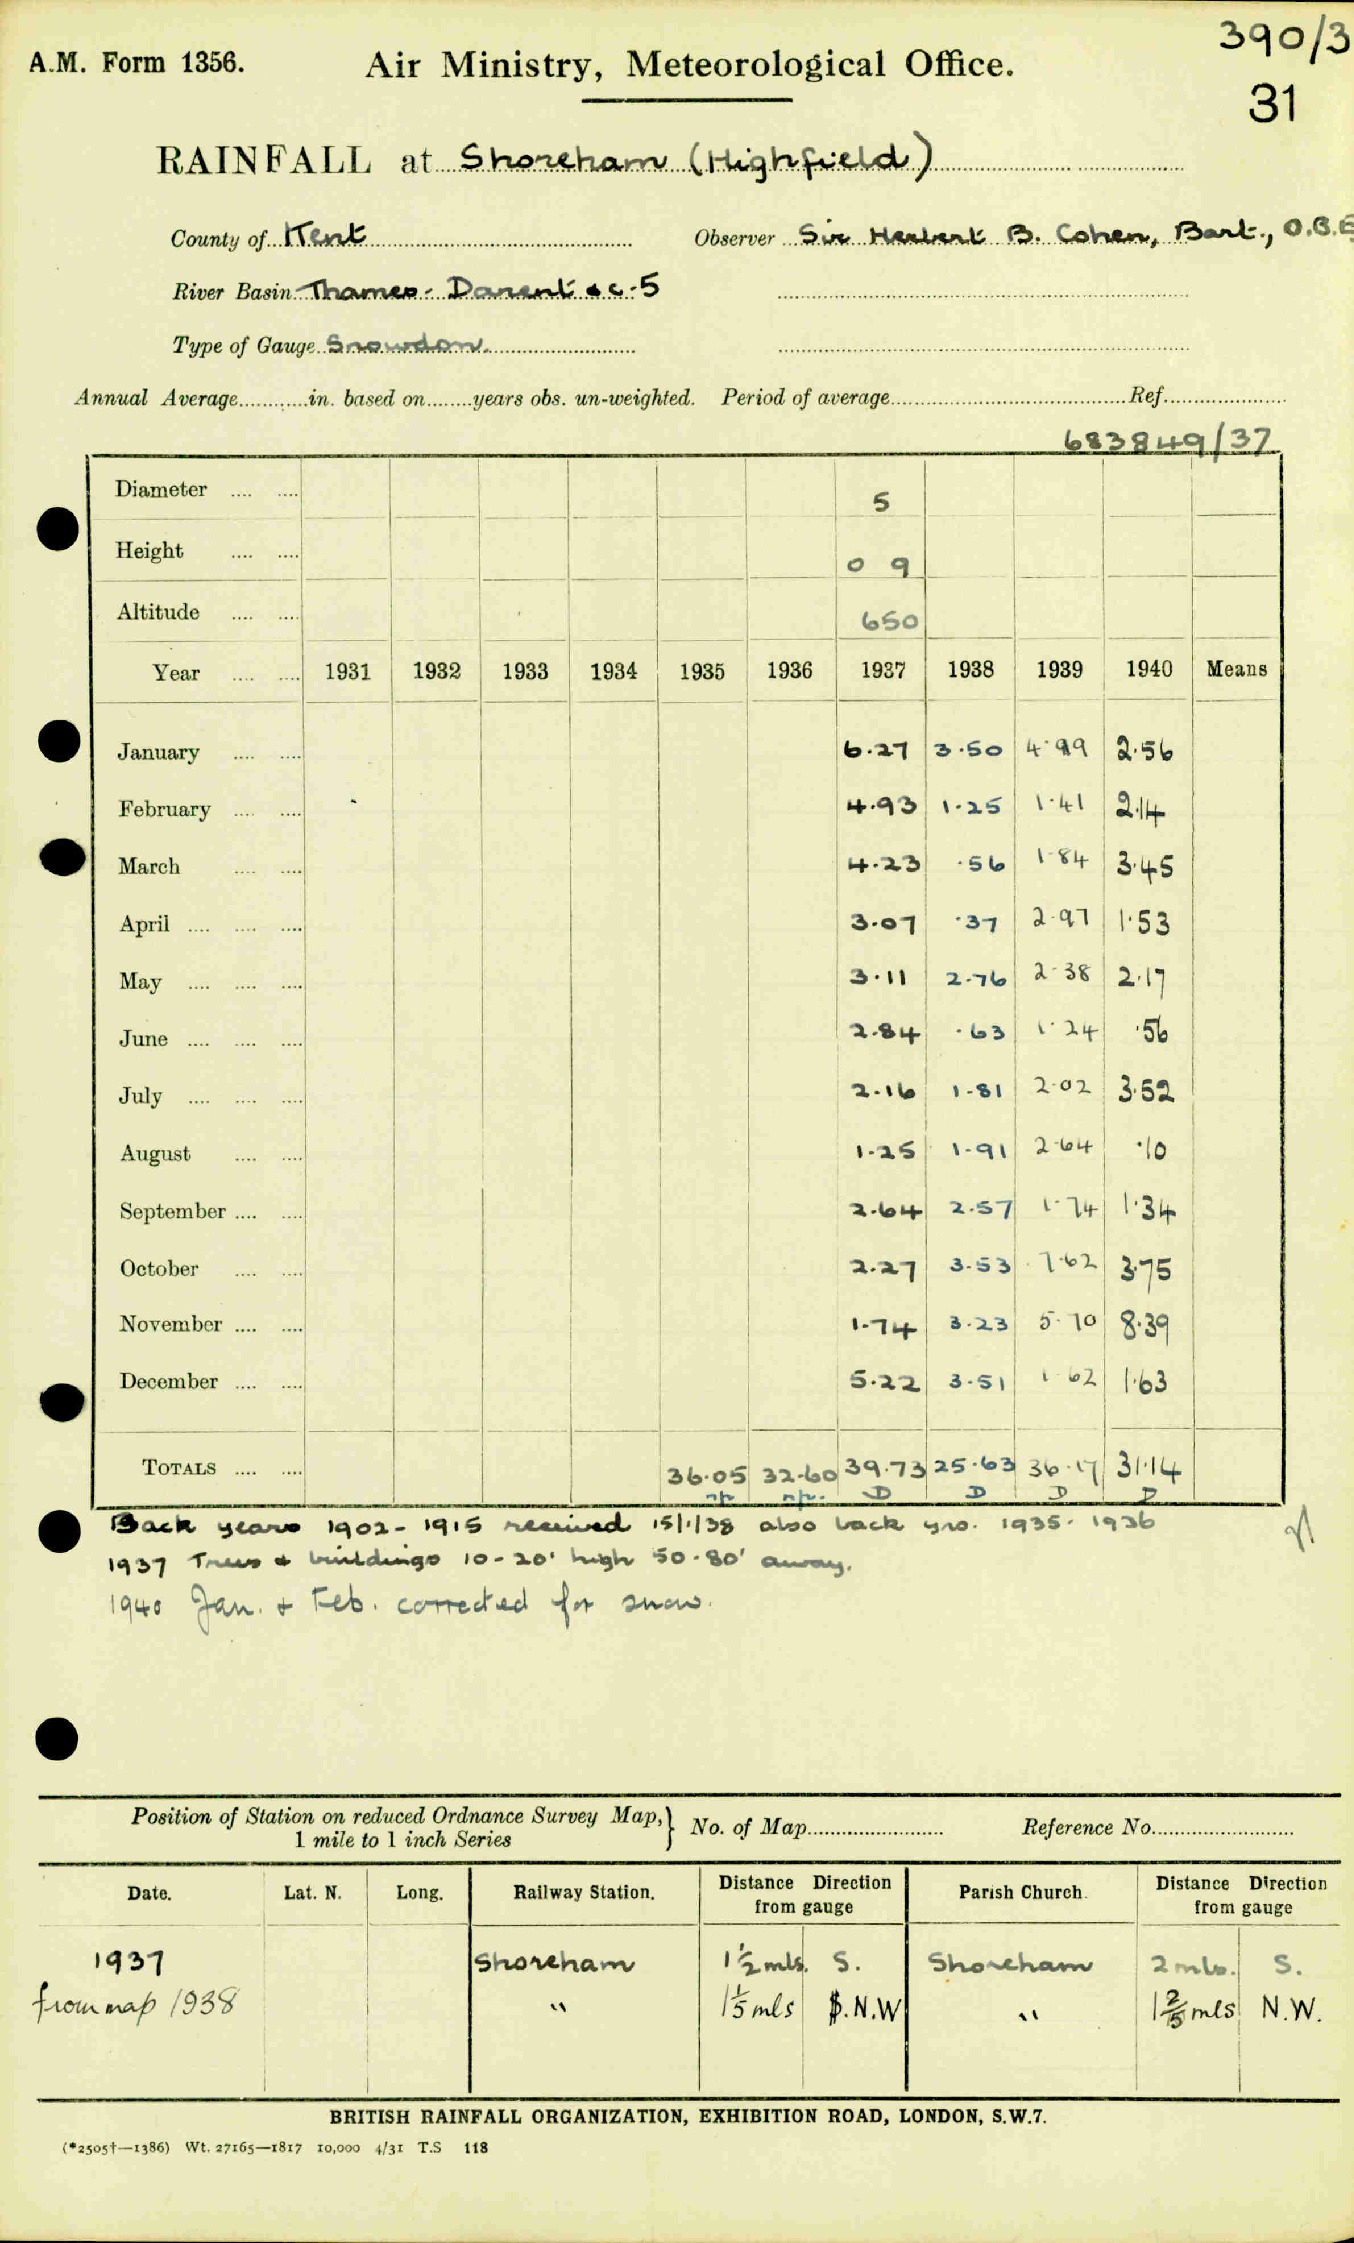 390/3
A.M. Form 1356. Air Ministry, Meteorological Office.
31
RAINFALL at Shoreham (Highfield)
County of Kent Observer Sir Herbert B. Cohen, Bart., O.B.E
River Basin Thames - Darent &c - 5
Type of Gauge Snowdon.
Annual Average............in. based on........years obs. un-weighted. Period of average............ Ref............
683849/37
Diameter .... .... 5
Height .... .... 0 9
Altitude .... .... 650
Year .... .... 1931 1932 1933 1934 1935 1936 1937 1938 1939 1940 Means
January .... .... 6.27 3.50 4.99 2.56
February .... .... 4.93 1.25 1.41 2.14
March .... .... 4.23 .56 1.84 3.45
April .... .... .... 3.07 .37 2.97 1.53
May .... .... .... 3.11 2.76 2.38 2.17
June .... .... .... 2.84 .63 1.24 .56
July .... .... .... 2.16 1.81 2.02 3.52
August .... .... 1.25 1.91 2.64 .10
September .... .... 2.64 2.57 1.74 1.34
October .... .... 2.27 3.53 7.62 3.75
November .... .... 1.74 3.23 5.70 8.39
December .... .... 5.22 3.51 1.62 1.63
TOTALS .... .... 36.05 32.60 39.73 25.63 36.17 31.14
D D D D
Back years 1902 - 1915 received 15/1/38 also back yrs. 1935. 1936
1937 Trees & buildings 10 - 20' high 50 - 80' away.
1940 Jan. & Feb. corrected for snow.
Position of Station on reduced Ordnance Survey Map,} No. of Map............ Reference No............
1 mile to 1 inch Series
Date. Lat. N. Long. Railway Station. Distance Direction from gauge Parish Church. Distance Direction from gauge
1937 Shoreham 1½ mls. S. Shoreham 2 mls. S.
from map 1938 " 1⅕ mls S.N.W " 1⅖ mls N.W.
BRITISH RAINFALL ORGANIZATION, EXHIBITION ROAD, LONDON, S.W.7.
(*2505†—1386) Wt. 27165—1817 10,000 4/31 T.S 118